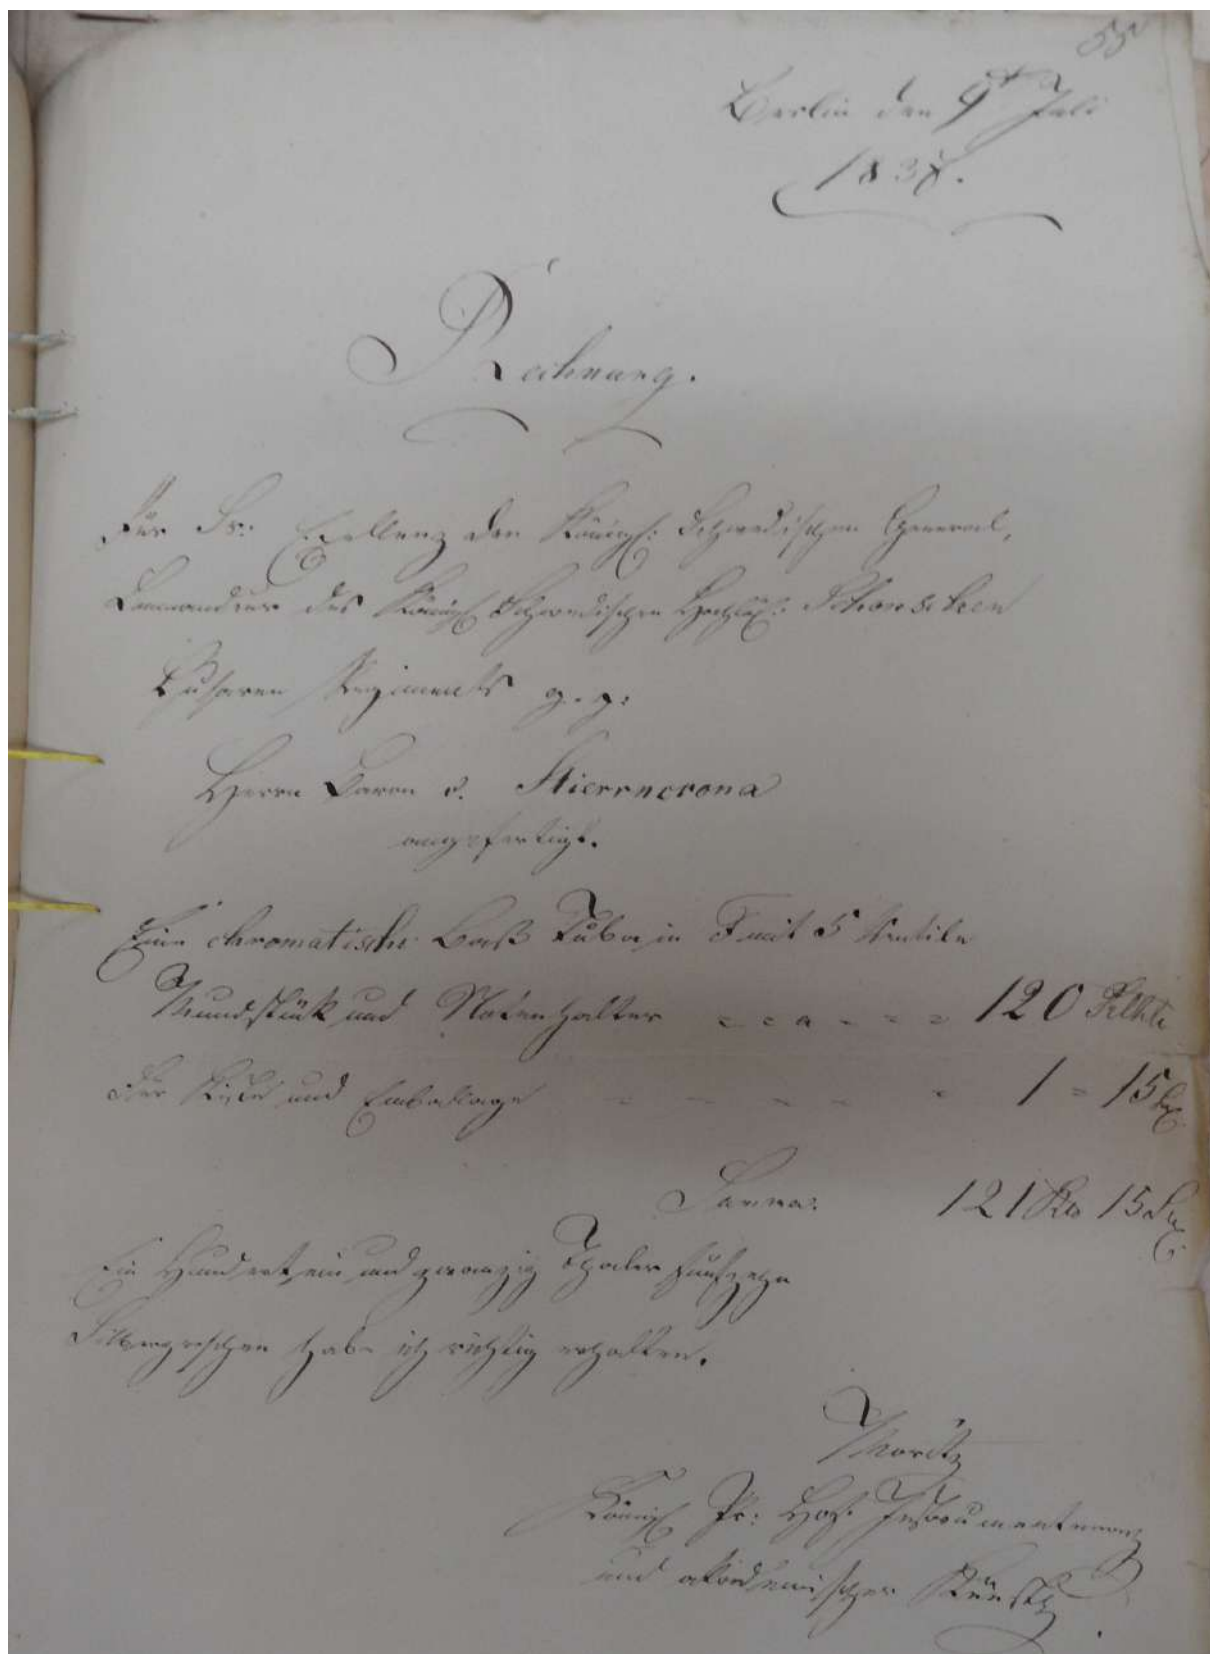 55
Berlin den 9t Juli
1838.
Rechnung.
Für Sr: Exellenz den Königl: Schwedischen General,
Commandeur des Königl Schwedischen Hochlöbl: Schonschen
Husaren Regiments p. p:
Herrn Baron v. Stiernerona
angefertigt.
Eine chromatische Baß Tuba in F mit 5 Ventile
Mundstück und Notenhalter = = = = = = 120
Für Kiste und Emballage = = = = = 1 = 15 Sg
Summa. 121 15 Sg
Ein Hundert ein und zwanzig Thaler funfzehn
Silbergroschen habe ich richtig erhalten.
Moritz
Königl Pr: Hof Instrumentenm
und akademischer Künstl